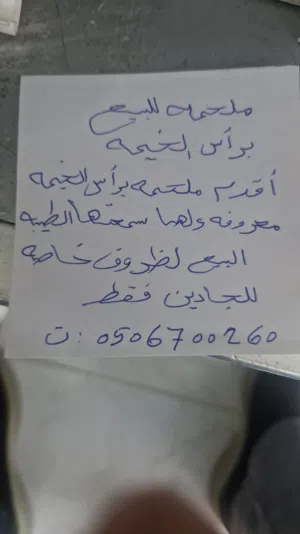 ملحمه للبيع
برأس الخيمه
أقدم ملحمه برأس الخيمه
معروفه ولها سمعتها الطيبه
البيع لظروف خاصه
للجادين فقط
ت: 0506700260